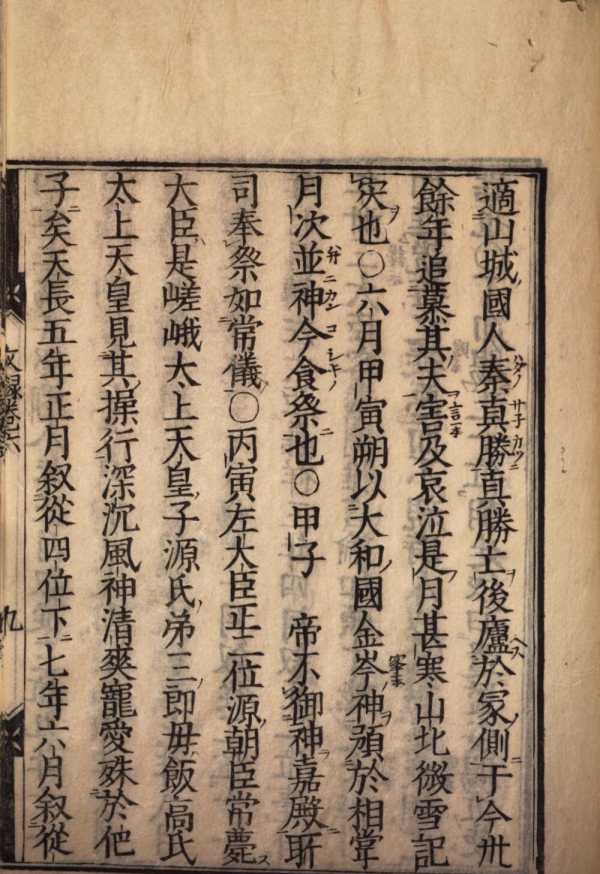 適山城國人秦真勝真勝士後廬於冢側于今卅
餘年追慕其夫言及哀泣是月甚寒山北微雪記
灾也〇六月甲寅朔以大和國金岑神預於相甞
月次並神今食祭也〇甲子 帝不御神嘉殿所
司奉祭如常儀〇丙寅左大臣正二位源朝臣常薨
大臣是嵯峨太上天皇子源氏弟三即毋飯高氏
太上天皇見其操行深沉風神清爽寵愛殊於他
子矣天長五年正月叙從四位下七年六月叙從
九